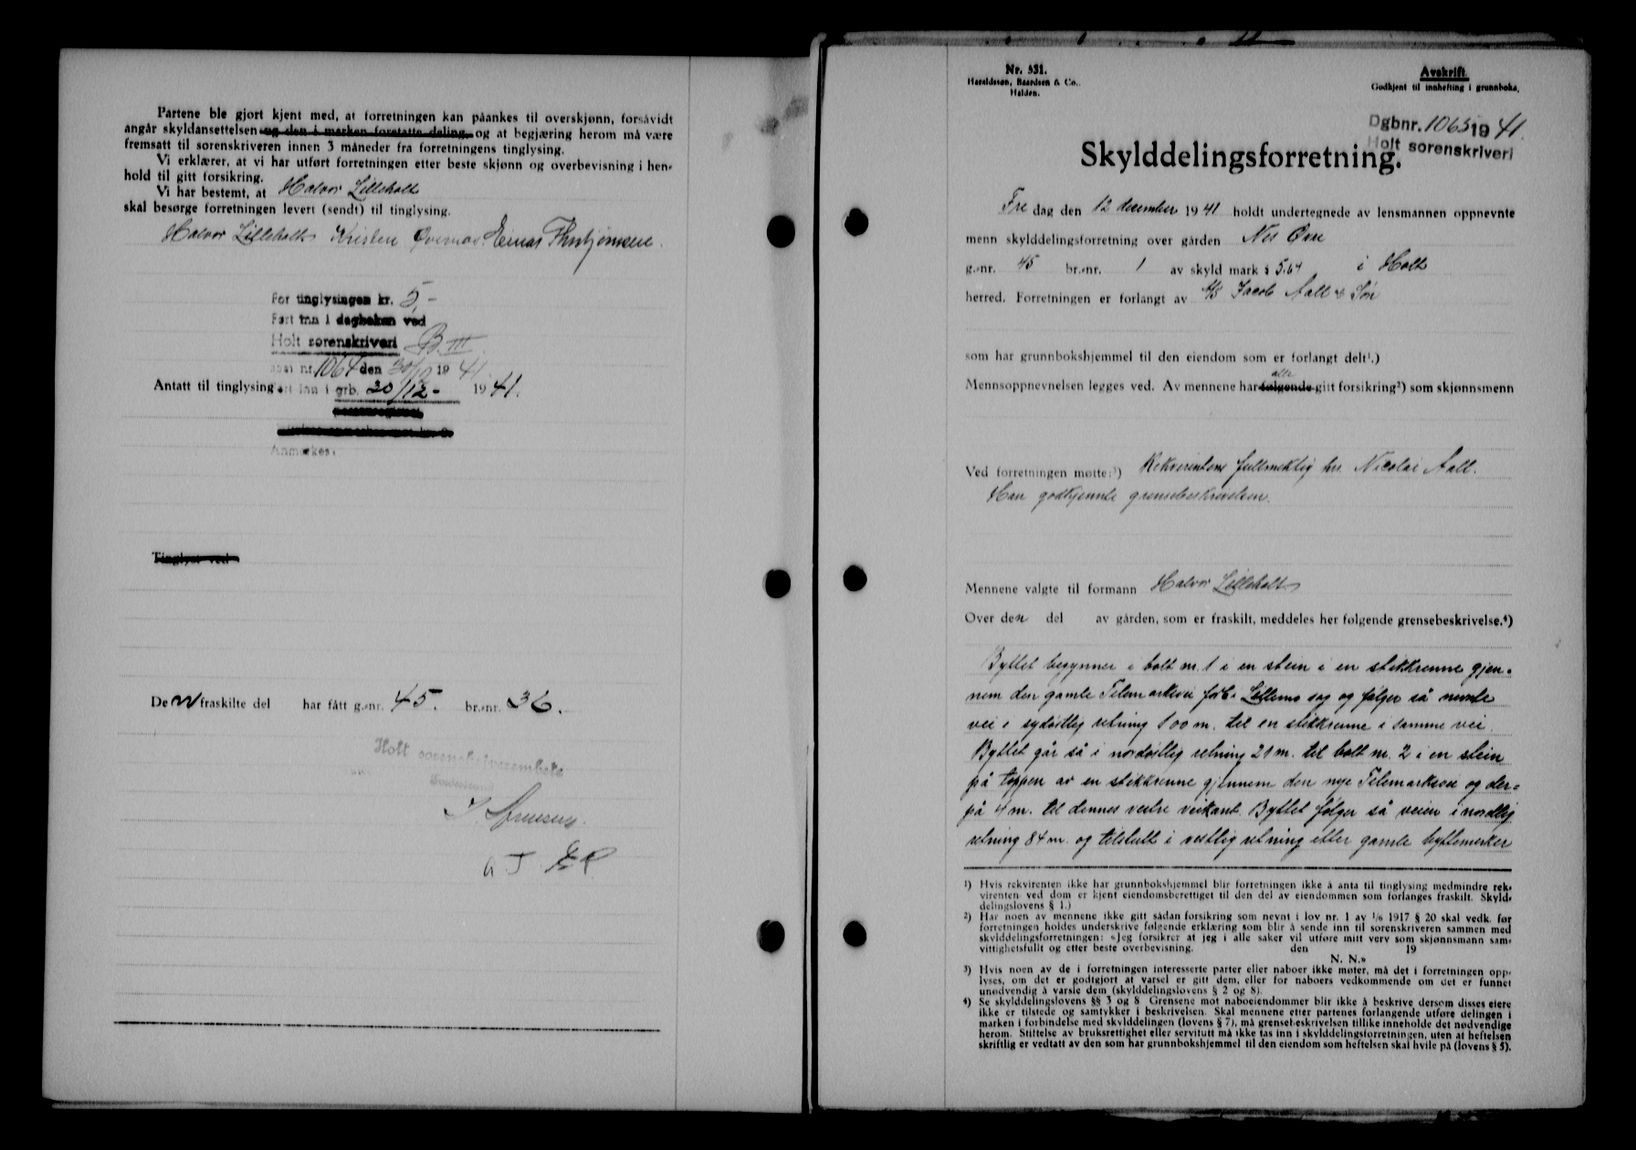 Partene ble gjort kjent med, at forretningen kan påankes til overskjønn, forsåvidt
angår skyldansettelsen og den i marken foretatte deling, og at begjæring herom må være
fremsatt til sorenskriveren innen 3 måneder fra forretningens tinglysing.
Vi erklærer, at vi har utført forretningen etter beste skjønn og overbevisning i hen-
hold til gitt forsikring.
Vi har bestemt, at Halvor Lilleholt
skal besørge forretningen levert (sendt) til tinglysing.
Halvor Lilleholt Kristen Øvernes Einar Thorbjørnsen.
For tinglysingen kr. 5,-
Ført inn i dagboken ved
Holt sorenskriveri B III
nr. 1064 den 20/12 1941.
Antatt til tinglysing
inn i grb. 20/12 - 1941.
Anmerkes:
Tinglyst ved
Den fraskilte del har fått g.-nr. 45. br.-nr. 36.
Holt sorenskriverembete
Nr. 531.
Haraldssen, Baardsen & Co..
Halden.
Avskrift.
Godkjent til innhefting i grunnboka.
Dgbnr. 1065 1941
Holt sorenskriveri
Skylddelingsforretning.
Fre dag den 12 december 1941 holdt undertegnede av lensmannen oppnevnte
menn skylddelingsforretning over gården Nes Øvre
g.-nr. 45 br.-nr. 1 av skyld mark 5.64 i Holt
herred. Forretningen er forlangt av A/S Jacob Aall & Søn
som har grunnbokshjemmel til den eiendom som er forlangt delt¹.)
Mennsoppnevnelsen legges ved. Av mennene har følgende alle gitt forsikring²) som skjønnsmenn
Ved forretningen møtte:³) Rekvirentens fullmektig hr. Nicolai Aall.
Han godkjennte grensebeskrivelsen.
Mennene valgte til formann Halvor Lilleholt
Over den del av gården, som er fraskilt, meddeles her følgende grensebeskrivelse.⁴)
Byttet begynner i bolt nr. 1 i en stein i en stikkrenne gjen-
nem den gamle Telemarkvei sag og følger så nevnte
vei i sydøstlig retning 100 m. til en stikkrenne i samme vei.
Byttet går så i nordøstlig retning 21 m. til bolt nr. 2 i en stein
på toppen av en stikkrenne gjennem den nye Telemarksvei og der-
på 4 m. til dennes vestre veikant. Byttet følger så veien i nordlig
retning 84 m. og tilslutt i vestlig retning etter gamle byttemerker
¹) Hvis rekvirenten ikke har grunnbokshjemmel blir forretningen ikke å anta til tinglysing medmindre rek-
virenten ved dom er kjent eiendomsberettiget til den del av eiendommen som forlanges fraskilt. Skyld-
delingslovens § 1.)
²) Har noen av mennene ikke gitt sådan forsikring som nevnt i lov nr. 1 av 1/6 1917 § 20 skal vedk. før
forretningen holdes underskrive følgende erklæring som blir å sende inn til sorenskriveren sammen med
skylddelingsforretningen: «Jeg forsikrer at jeg i alle saker vil utføre mitt verv som skjønnsmann sam-
vittighetsfullt og etter beste overbevisning. den 19
N. N.»
³) Hvis noen av de i forretningen interesserte parter eller naboer ikke møter, må det i forretningen opp-
lyses, om det er godtgjort at varsel er gitt dem, eller for naboers vedkommende om det er funnet
unødvendig å varsle dem (skylddelingslovens § 2 og 8).
⁴) Se skylddelingslovens §§ 3 og 8 Grensene mot naboeiendommer blir ikke å beskrive dersom disses eiere
ikke er tilstede og samtykker i beskrivelsen. Skal mennene etter partenes forlangende utføre delingen i
marken i forbindelse med skylddelingen (lovens § 7), må grensebeskrivelsen tillike inneholde det nødvendige
herom. Stiftelse av bruksrettighet eller servitutt må ikke tas inn i skylddelingsforretningen, uten at heftelsen
skriftlig er vedtatt av den som har grunnbokshjemmel til den eiendom som heftelsen skal hvile på (lovens § 5).